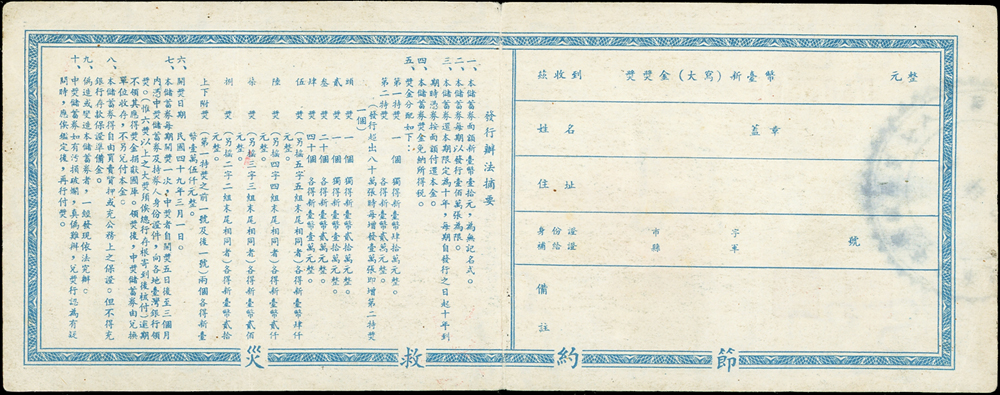 茲收到　獎獎金（大寫）新臺幣　元整
姓名　蓋章
住址
身份證　市　字　號
補給證　縣　軍
備註
發行辦法摘要
一、本儲蓄券面額新臺幣壹拾元，為無記名式。
二、本儲蓄券每期以發行壹佰萬張為限。
三、本儲蓄券還本期限定為十年，每期自發行之日起十年到
期時憑券按面額付還本金。
四、本儲蓄券獎金免納所得稅。
五、獎金分配如下：
第一特獎　一個　獨得新臺幣肆拾萬元整。
第二特獎　各得新臺幣貳萬元整。
（發行超出八十萬張時每增發壹萬張即增第二特獎
一個）
頭獎　一個　獨得新臺幣貳拾萬元整。
貳獎　一個　獨得新臺幣壹拾萬元整。
叁獎　十個　各得新臺幣貳萬元整。
肆獎　四十個　各得新臺幣壹萬元整。
伍獎　（另搖五字五組末尾相同者）各得新臺幣肆仟
元整。
陸獎　（另搖四字四組末尾相同者）各得新臺幣貳仟
元整。
柒獎　（另搖三字三組末尾相同者）各得新臺幣貳佰
元整。
捌獎　（另搖二字二組末尾相同者）各得新臺幣貳拾
元整。
上下附獎　（第一特獎之前一號及後一號）兩個各得新臺
幣壹萬伍仟元整。
六、開獎日期　民國四十九年三月一日。
七、本儲蓄券每期開獎一次，中獎者自開獎五日後至三個月
內憑中獎儲蓄券及持券人身份證件，向各地臺灣銀行領
獎。（惟六獎以上之大獎須俟總行存根寄到後核付）逾期
不領其應得獎金捐獻國庫。領獎後，中獎儲蓄券由兌換
單位收存，不另兌付本金。
八、本儲蓄券得自由買賣質押或充公務上之保證。但不得充
銀行存款保證準備金。
九、偽造或變造本儲蓄券者，一經發現依法究辦。
十、中獎儲蓄券如有污損破爛，真偽難辦，兌獎行認為有疑
問時，應俟鑑定後，再行付獎。
節約救災